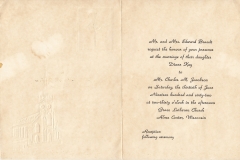 Mr. and Mrs. Edward
request the honour of your presence
at the marriage of their daughter
Diane Kay
to
Mr. Charles M.
on Saturday, the of June
Nineteen hundred and sixty-two
at o'clock in the afternoon
Grace Lutheran Church
Alma Center, Wisconsin
Reception
following ceremony